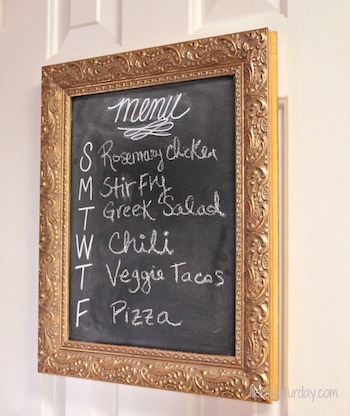 menu
S Rosemary Chicken
M Stir Fry
T Greek Salad
W Chili
T Veggie Tacos
F Pizza